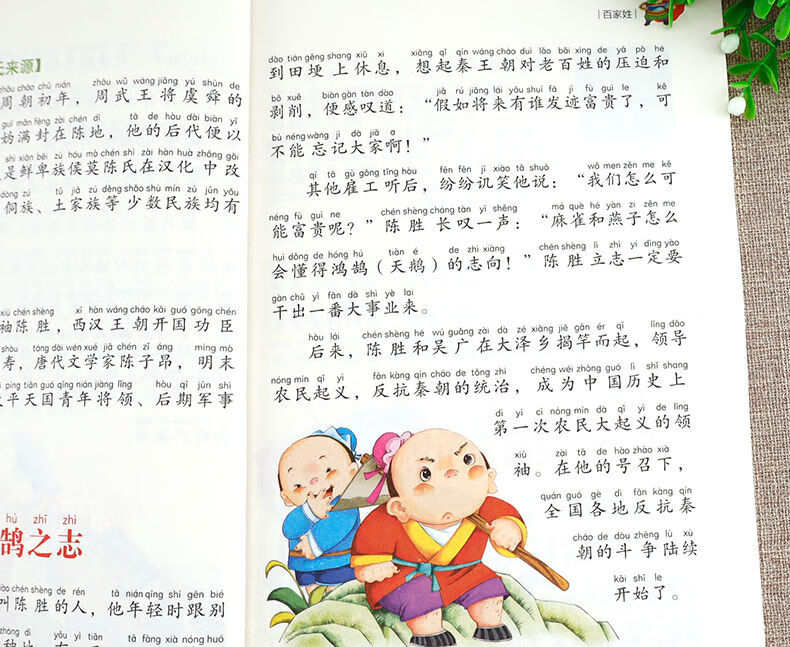 天来源】
zhōu cháo chū nián zhōu wǔ wáng jiāng yú shùn de
周朝初年，周武王将虞舜的
guī mǎn fēng zài chén dì tā de hòu dài biàn yǐ
妫满封在陈地，他的后代便以
shì xiān bēi zú hóu mò chén shì zài hàn huà zhōng gǎi
是鲜卑族侯莫陈氏在汉化中改
dòng zú tǔ jiā zú děng shǎo shù mín zú jūn yǒu
侗族、土家族等少数民族均有
xiù chén shèng xī hàn wáng cháo kāi guó gōng chén
袖陈胜，西汉王朝开国功臣
shòu táng dài wén xué jiā chén zǐ áng míng mò
寿，唐代文学家陈子昂，明末
píng tiān guó qīng nián jiàng lǐng hòu qī jūn shì
平天国青年将领、后期军事
hú zhī zhì
鹄之志
jiào chén shèng de rén tā nián qīng shí gēn bié
叫陈胜的人，他年轻时跟别
zhòng dì yǒu yì tiān tā fàng xià nóng huó
百家姓
dào tián gěng shang xiū xi xiǎng qǐ qín wáng cháo duì lǎo bǎi xìng de yā pò hé
到田埂上休息，想起秦王朝对老百姓的压迫和
bō xuē biàn gǎn tàn dào jiǎ rú jiāng lái yǒu shuí fā jì fù guì le kě
剥削，便感叹道：“假如将来有谁发迹富贵了，可
bù néng wàng jì dà jiā a
不能忘记大家啊！”
qí tā gù gōng tīng hòu fēn fēn jī xiào tā shuō wǒ men zěn me kě
其他雇工听后，纷纷讥笑他说：“我们怎么可
néng fù guì ne chén shèng cháng tàn yì shēng má què hé yàn zi zěn me
能富贵呢？”陈胜长叹一声：“麻雀和燕子怎么
huì dǒng de hóng hú tiān é de zhì xiàng chén shèng lì zhì yí dìng yào
会懂得鸿鹄（天鹅）的志向！”陈胜立志一定要
gàn chū yì fān dà shì yè lai
干出一番大事业来。
hòu lái chén shèng hé wú guǎng zài dà zé xiāng jiē gān ér qǐ lǐng dǎo
后来，陈胜和吴广在大泽乡揭竿而起，领导
nóng mín qǐ yì fǎn kàng qín cháo de tǒng zhì chéng wéi zhōng guó lì shǐ shang
农民起义，反抗秦朝的统治，成为中国历史上
dì yī cì nóng mín dà qǐ yì de lǐng
第一次农民大起义的领
xiù zài tā de hào zhào xià
袖。在他的号召下，
quán guó gè dì fǎn kàng qín
全国各地反抗秦
cháo de dòu zhēng lù xù
朝的斗争陆续
kāi shǐ le
开始了。